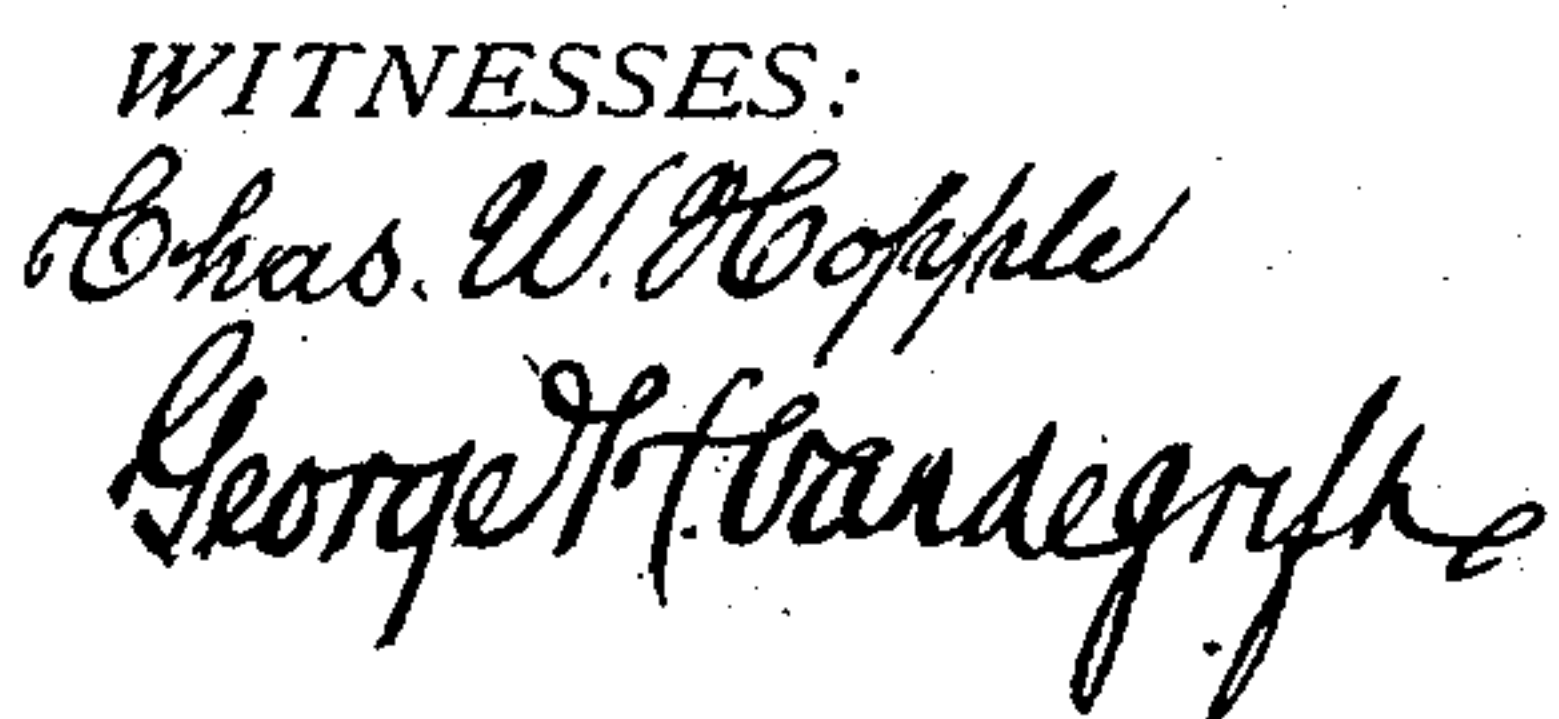 WITNESSES:
Chas. W. Hopple
George H. Vandegrift